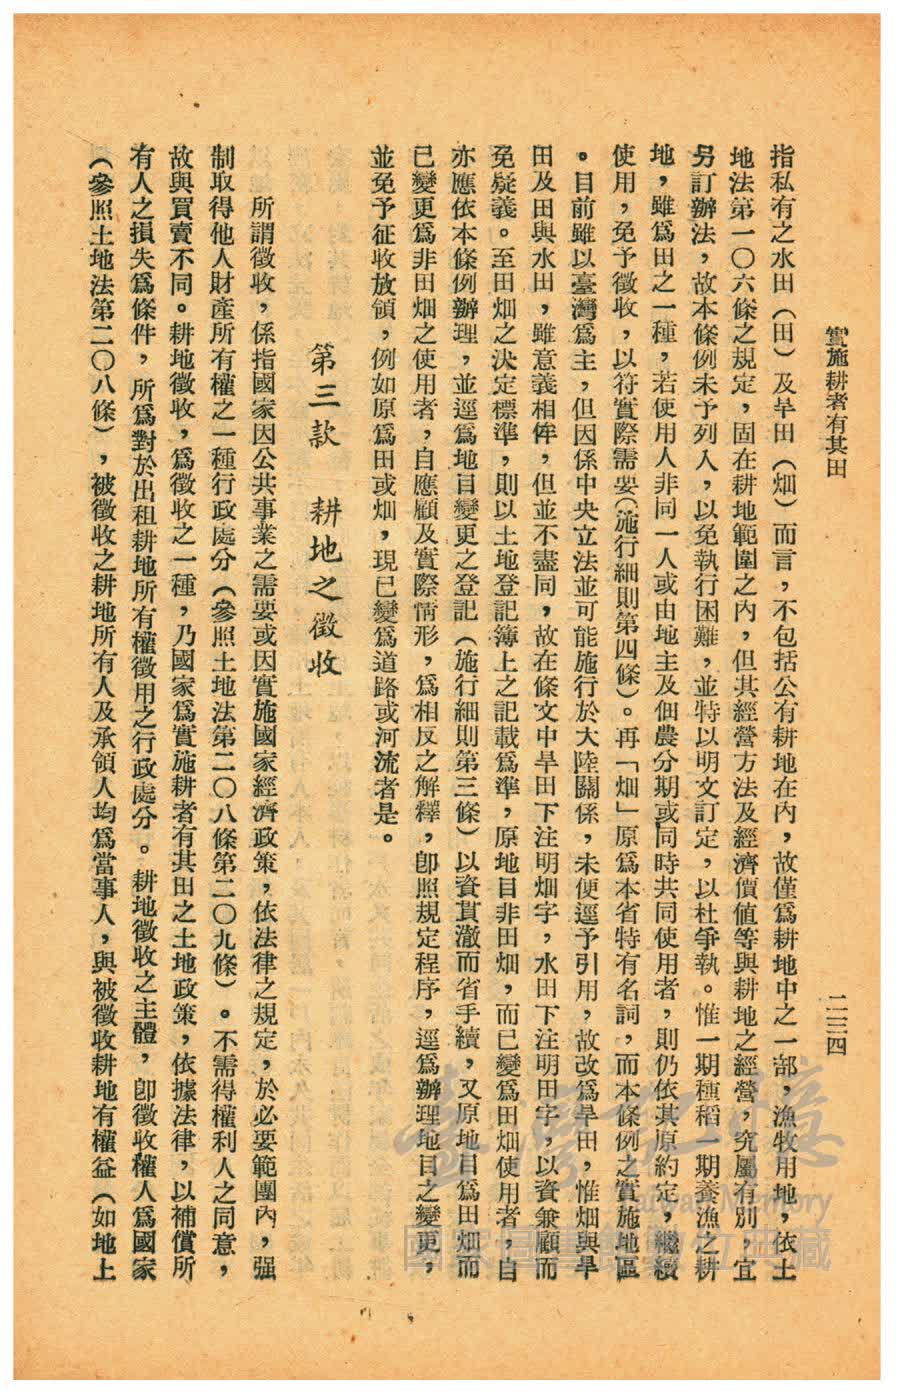 實施耕者有其田
二三四
指私有之水田（田）及旱田（畑）而言，不包括公有耕地在內，故僅爲耕地中之一部，漁牧用地，依土
地法第一〇六條之規定，固在耕地範圍之內，但其經營方法及經濟價値等與耕地之經營，究屬有別，宜
另訂辦法，故本條例未予列入，以免執行困難，並特以明文訂定，以杜爭執。惟一期種稻一期養漁之耕
地，雖爲田之一種，若使用人非同一人或由地主及佃農分期或同時共同使用者，則仍依其原約定，繼續
使用，免予徵收，以符實際需要（施行細則第四條）。再「畑」原爲本省特有名詞，而本條例之實施地區
。目前雖以臺灣爲主，但因係中央立法並可能施行於大陸關係，未便逕予引用，故改爲旱田，惟畑與旱
田及田與水田，雖意義相侔，但並不盡同，故在條文中旱田下注明畑字，水田下注明田字，以資兼顧而
免疑義。至田畑之決定標準，則以土地登記簿上之記載爲準，原地目非田畑，而已變爲田畑使用者，自
亦應依本條例辦理，並逕爲地目變更之登記（施行細則第三條）以資貫澈而省手續，又原地目爲田畑而
已變更爲非田畑之使用者，自應顧及實際情形，爲相反之解釋，卽照規定程序，逕爲辦理地目之變更，
並免予征收放領，例如原爲田或畑，現已變爲道路或河流者是。
第三款　耕地之徵收
所謂徵收，係指國家因公共事業之需要或因實施國家經濟政策，依法律之規定，於必要範圍內，强
制取得他人財產所有權之一種行政處分（參照土地法第二〇八條第二〇九條）。不需得權利人之同意，
故與買賣不同。耕地徵收，爲徵收之一種，乃國家爲實施耕者有其田之土地政策，依據法律，以補償所
有人之損失爲條件，所爲對於出租耕地所有權徵用之行政處分。耕地徵收之主體，卽徵收權人爲國家
（參照土地法第二〇八條），被徵收之耕地所有人及承領人均爲當事人，與被徵收耕地有權益（如地上
臺灣記憶
Taiwan Memory
國家圖書館數位典藏